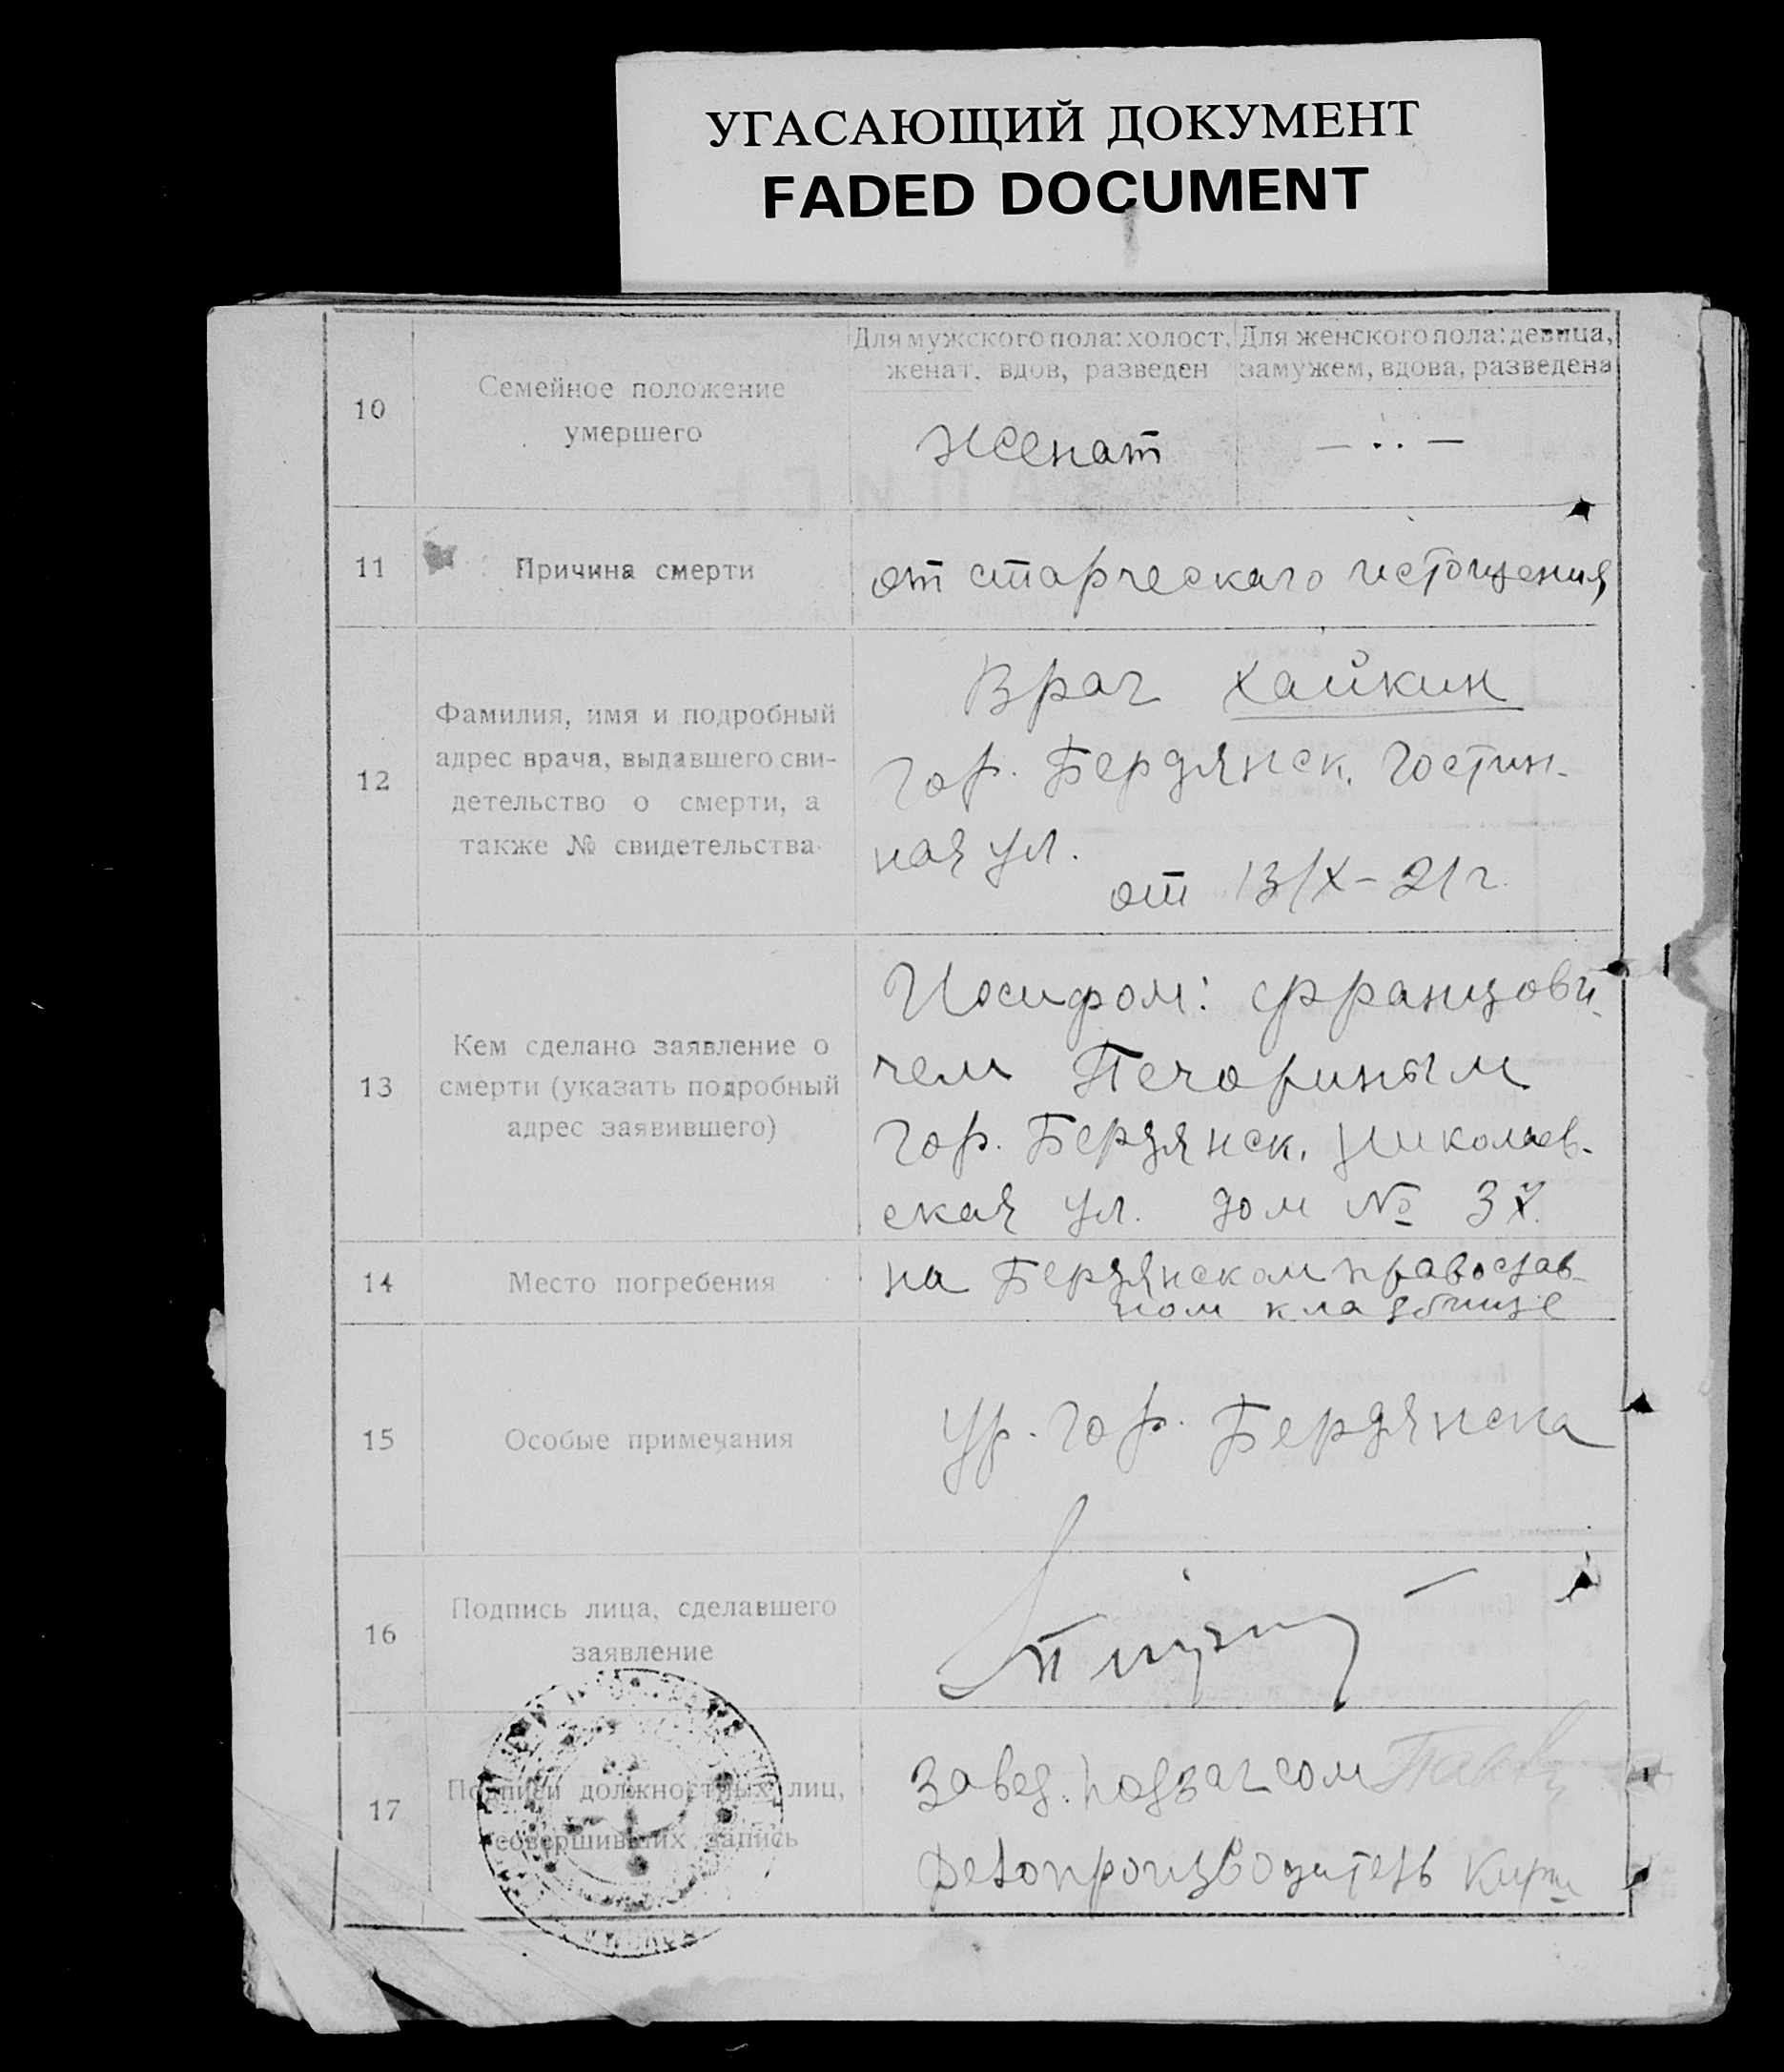 УГАСАЮЩИЙ ДОКУМЕНТ
FADED DOCUMENT
10
Семейное положение
умершего
Для мужского пола: холост,
женат, вдов, разведен
Для женского пола: девица,
замужем, вдова, разведена
Женат
— ·· —
11
Причина смерти
от старческаго истощения
12
Фамилия, имя и подробный
адрес врача, выдавшего сви-
детельство о смерти, а
также № свидетельства
Врач Хайкин
гор. Бердянск, Гостин-
ная ул.
от 13/X – 21 г.
13
Кем сделано заявление о
смерти (указать подробный
адрес заявившего)
Иосифом: Францови-
чем Печориным
гор. Бердянск, Николаев-
ская ул. дом №
14
Место погребения
на Бердянском православ-
ном кладбище
15
Особые примечания
ур. гор. Бердянска
16
Подпись лица, сделавшего
заявление
17
Подписи должностных лиц,
совершивших запись
Завед. подзагсом
Делопроизводитель